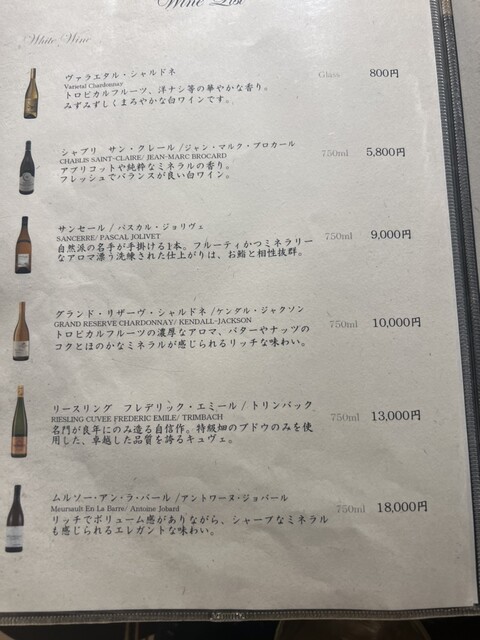 Wine List
White Wine
ヴァラエタル・シャルドネ Glass 800円
Varietal Chardonnay
トロピカルフルーツ、洋ナシ等の華やかな香り。
みずみずしくまろやかな白ワインです。
シャブリ サン・クレール /ジャン・マルク・ブロカール 750ml 5,800円
CHABLIS SAINT-CLAIRE/ JEAN-MARC BROCARD
アプリコットや純粋なミネラルの香り。
フレッシュでバランスが良い白ワイン。
サンセール / パスカル・ジョリヴェ 750ml 9,000円
SANCERRE/ PASCAL JOLIVET
自然派の名手が手掛ける1本。フルーティかつミネラリー
なアロマ漂う洗練された仕上がりは、お鮨と相性抜群。
グランド・リザーヴ・シャルドネ /ケンダル・ジャクソン 750ml 10,000円
GRAND RESERVE CHARDONNAY/ KENDALL-JACKSON
トロピカルフルーツの濃厚なアロマ、バターやナッツの
コクとほのかなミネラルが感じられるリッチな味わい。
リースリング フレデリック・エミール / トリンバック 750ml 13,000円
RIESLING CUVEE FREDERIC EMILE/ TRIMBACH
名門が良年にのみ造る自信作。特級畑のブドウのみを使
用した、卓越した品質を誇るキュヴェ。
ムルソー・アン・ラ・バール /アントワーヌ・ジョバール 750ml 18,000円
Meursault En La Barre/ Antoine Jobard
リッチでボリューム感がありながら、シャープなミネラル
も感じられるエレガントな味わい。